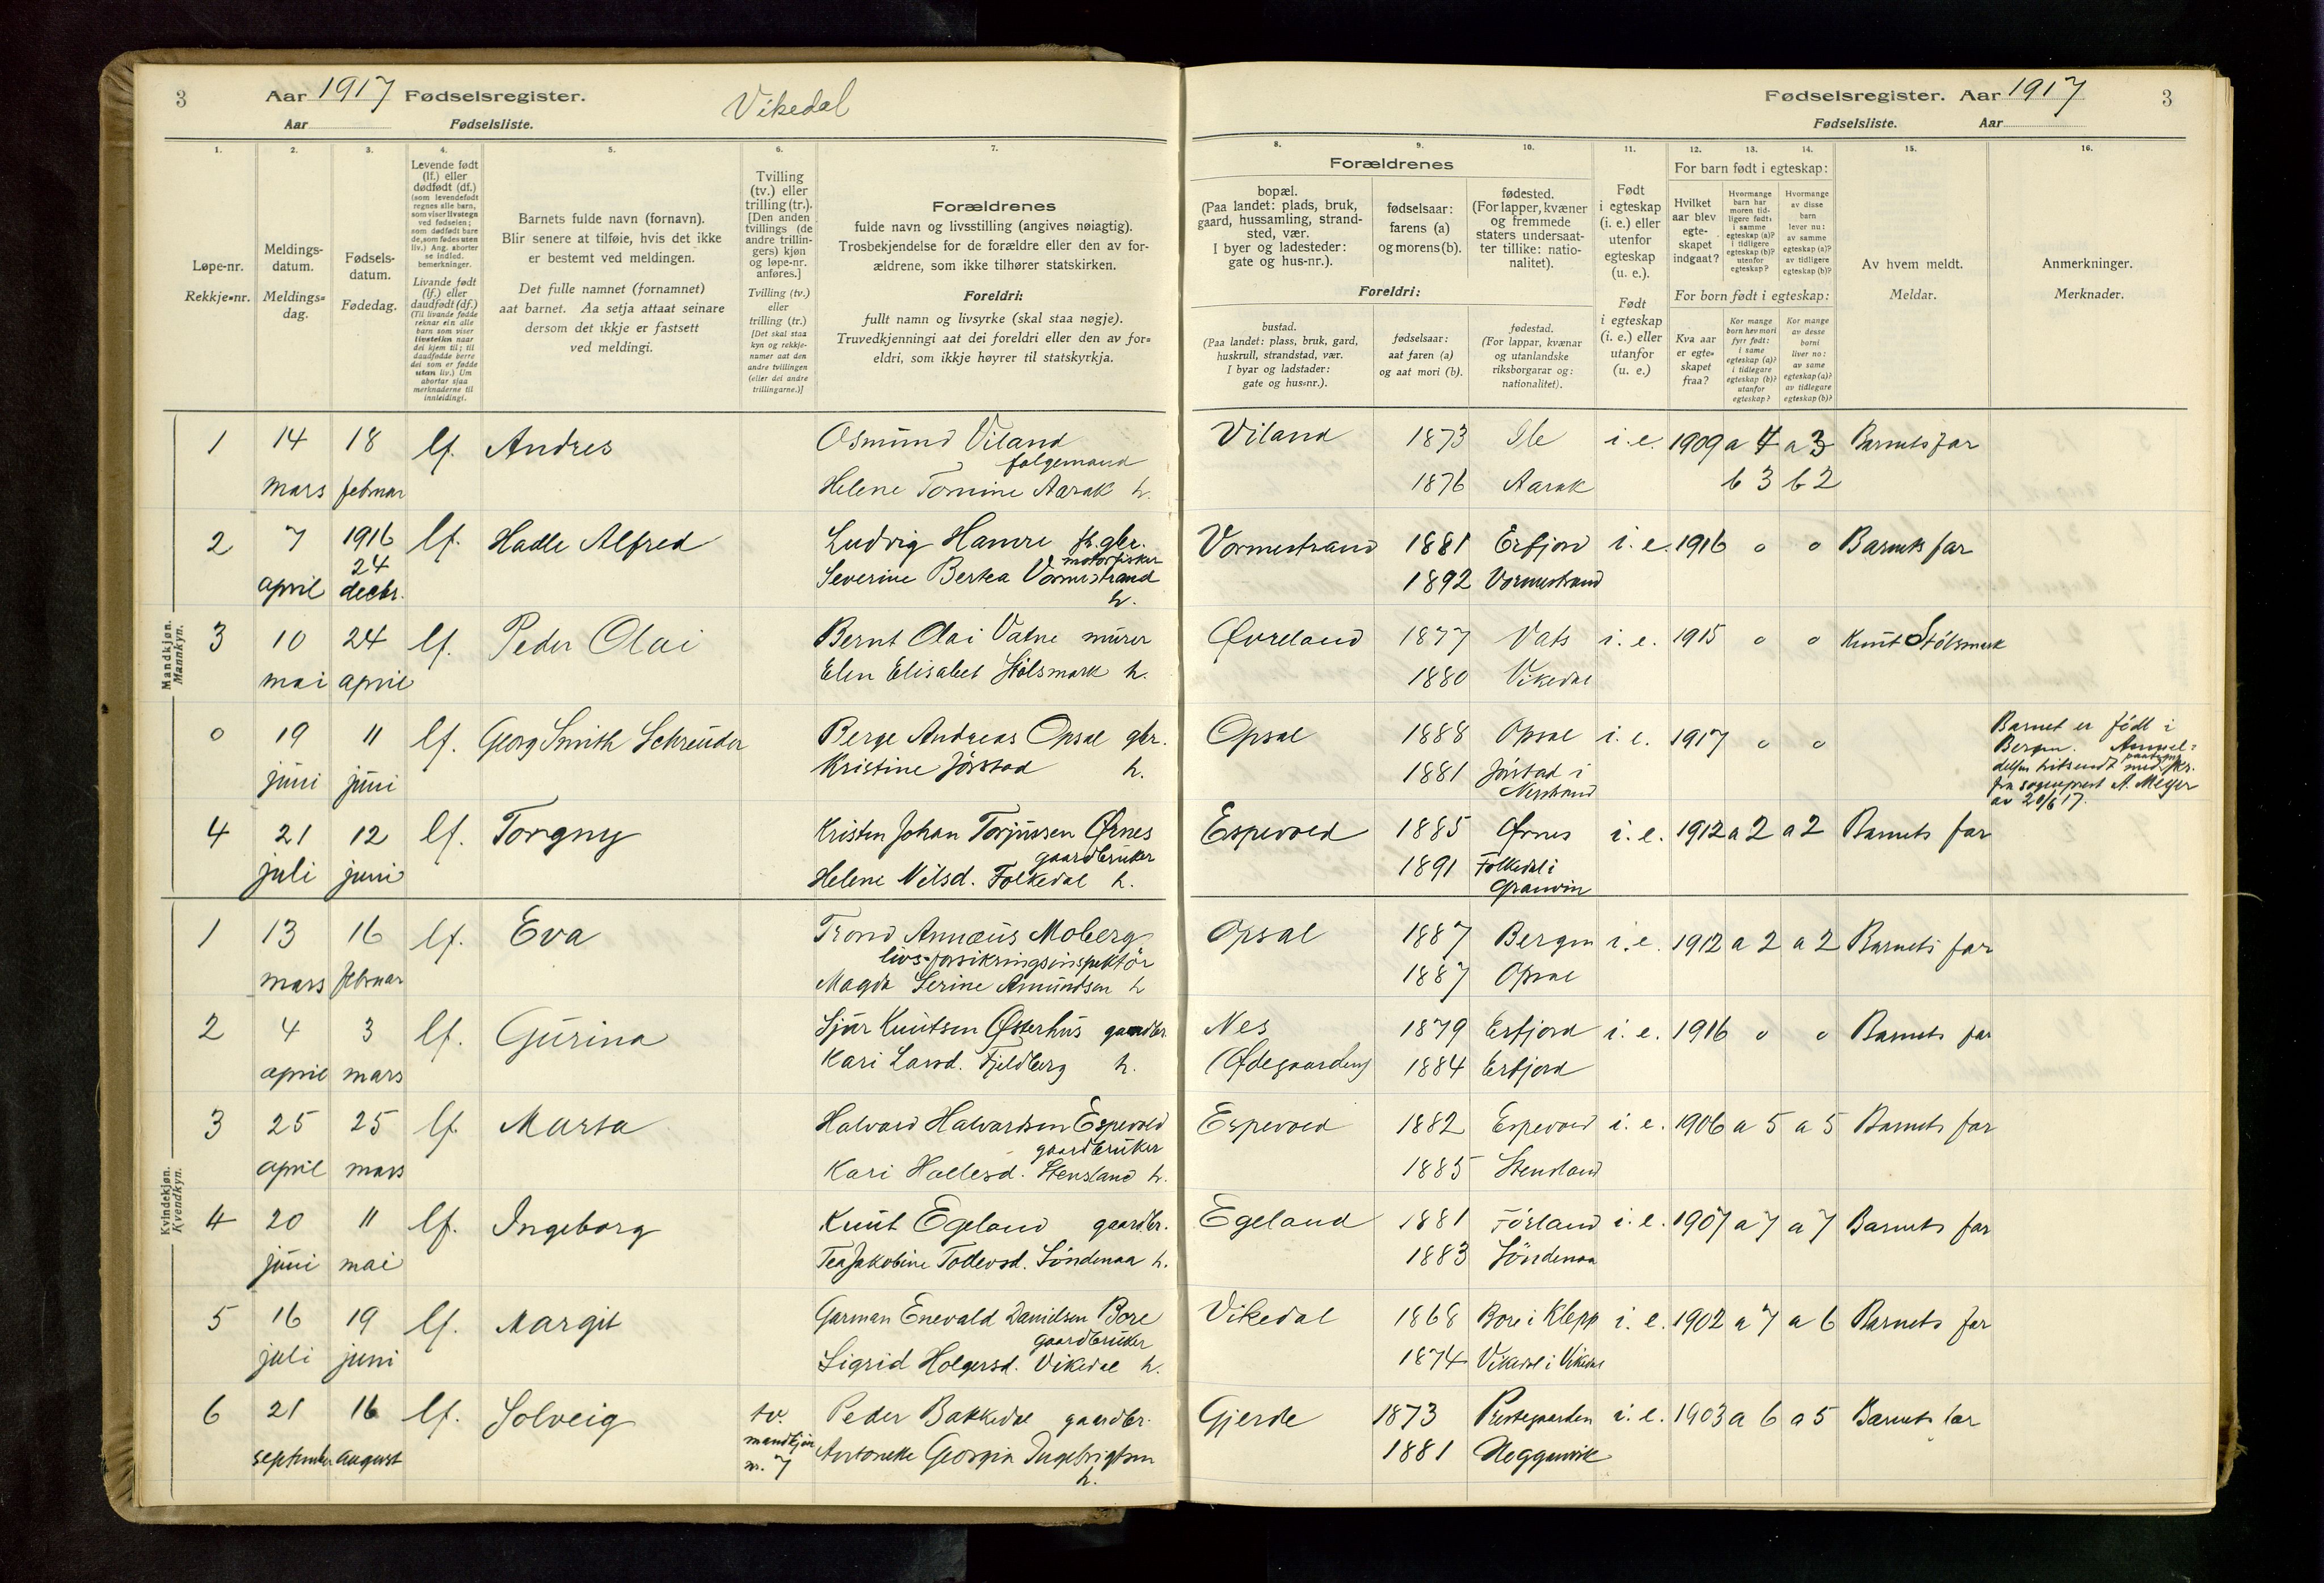 3 Aar 1917 Fødselsregister. Vikedal
Aar Fødselsliste.
Fødselsregister. Aar 1917 3
Fødselsliste. Aar
1. 2. 3. 4. 5. 6. 7.
8. 9. 10. 11. 12. 13. 14. 15. 16.
Løpe-nr.
Rekkje-nr.
Meldings-
datum.
Meldings-
dag.
Fødsels-
datum.
Fødedag.
Levende født
(lf.) eller
dødfødt (df.)
(som levendefødt
regnes alle barn,
som viser livstegn
ved fødselen;
som dødfødt bare
de, som fødes uten
liv.) Ang. aborter
se indled.
bemerkninger.
Livande født
(lf.) eller
daudfødt (df.)
(Til livande fødde
reknar ein alle
barn som viser
livsteikn naar
dei kjem til; til
daudfødde berre
dei som er fødde
utan liv.) Um
abortar sjaa
merknaderne til
innleidingi.
Barnets fulde navn (fornavn).
Blir senere at tilføie, hvis det ikke
er bestemt ved meldingen.
Det fulle namnet (fornamnet)
aat barnet. Aa setja attaat seinare
dersom det ikkje er fastsett
ved meldingi.
Tvilling
(tv.) eller
trilling (tr.).
[Den anden
tvillings (de
andre trillin-
gers) kjøn
og løpe-nr.
anføres.]
Tvilling (tv.)
eller
trilling (tr.)
[Det skal staa
kyn og rekkje-
numer aat den
andre tvillingen
(eller dei andre
trillingarne.)]
Forældrenes
fulde navn og livsstilling (angives nøiagtig).
Trosbekjendelse for de forældre eller den av for-
ældrene, som ikke tilhører statskirken.
Foreldri:
fullt namn og livsyrke (skal staa nøgje).
Truvedkjenningi aat dei foreldri eller den av for-
eldri, som ikkje høyrer til statskyrkja.
Forældrenes
bopæl.
(Paa landet: plads, bruk,
gaard, hussamling, strand-
sted, vær.
I byer og ladesteder:
gate og hus-nr.).
fødselsaar:
farens (a)
og morens (b).
fødested.
(For lapper, kvæner
og fremmede
staters undersaat-
ter tillike: natio-
nalitet).
Foreldri:
bustad.
(Paa landet: plass, bruk, gard,
huskrull, strandstad, vær.
I byar og ladstader:
gate og hus-nr.).
fødselsaar:
aat faren (a)
og aat mori (b).
fødestad.
(For lappar, kvænar
og utanlandske
riksborgarar og:
nationalitet).
Født
i egteskap
(i. e.) eller
utenfor
egteskap
(u. e.).
Født
i egteskap
(i. e.) eller
utanfor
(u. e.)
For barn født i egteskap:
Hvilket
aar blev
egte-
skapet
indgaat?
Hvormange
barn har
moren tid-
ligere født:
i samme
egteskap (a)?
i tidligere
egteskap (b)?
utenfor
egteskap?
Hvormange
av disse
barn
lever nu:
av samme
egteskap (a)?
av tidligere
egteskap (b)?
For born født i egteskap:
Kva aar
er egte-
skapet
fraa?
Kor mange
born hev mori
fyrr født:
i same
egteskap (a)?
i tidlegare
egteskap (b)?
utanfor
egteskap?
Kor mange
av desse
borni
liver no:
av same
egteskap (a)?
av tidlegare
egteskap (b)?
Av hvem meldt.
Meldar.
Anmerkninger.
Merknader.
Mandkjøn.
Mannkyn.
1 14 18 lf. Andres Osmund Viland Viland 1873 Ile i.e. 1909 a 4 a 3 Barnets far
følgemand
mars februar Helene Tomine Aarak h. 1876 Aarak b 3 b 2
2 7 1916 lf. Hadle Alfred Ludvig Hamre fr.gbr. Vormestrand 1881 Erfjord i.e. 1916 o o Barnets far
24 motorfisker
april decbr. Severine Bertea Vormestrand 1892 Vormestrand
h.
3 10 24 lf. Peder Olai Bernt Olai Vatne murer Øvreland 1877 Vats i.e. 1915 o o Knut Stölsmark
mai april Elen Elisabet Stölsmark h. 1880 Vikedal
0 19 11 lf. Georg Smith Schreuder Berge Andreas Opsal gbr. Opsal 1888 Opsal i.e. 1917 o o Barnet er födt i
Bergen.
juni juni Kristine Jörstad h. 1881 Jörstad i
Nerstrand
fra sogneprest A. Meyer
av 20/6 17.
4 21 12 lf. Torgny Kristen Johan Torjussen Ørnes Espevold 1885 Ørnes i.e. 1912 a 2 a 2 Barnets far
gaardbruker
juli juni Helene Nilsd. Folkedal h. 1891 Folkedal i
Granvin
Kvindekjøn.
Kvendkyn.
1 13 16 lf. Eva Trond Annæus Moberg Opsal 1887 Bergen i.e. 1912 a 2 a 2 Barnets far
livs-forsikringsinspektör
mars februar Magda Serine Amundsen h 1887 Opsal
2 4 3 lf. Gurina Sjur Knutsen Østerhus gaardbr. Nes 1879 Erfjord i.e. 1916 o o Barnets far
april mars Kari Larsd. Fjeldberg h. (Ødegaarden) 1884 Erfjord
3 25 25 lf. Marta Halvard Halvardsen Espevold Espevold 1882 Espevold i.e. 1906 a 5 a 5 Barnets far
gaardbruker
april mars Kari Hallesd. Stensland h. 1885 Stensland
4 20 11 lf. Ingeborg Knut Egeland gaardbr. Egeland 1881 Förland i.e. 1907 a 7 a 7 Barnets far
juni mai Tea Jakobine Tollevsd. Söndenaa h. 1883 Söndenaa
5 16 19 lf. Margit Garman Enevald Danielsen Bore Vikedal 1868 Bore i Klepp i.e. 1902 a 7 a 6 Barnets far
gaardbruker
juli juni Sigrid Holgersd. Vikedal h. 1874 Vikedal i Vikedal
6 21 16 lf. Solveig tv. Peder Bakkedal gaardbr. Gjerde 1873 Prestegaarden i.e. 1903 a 6 a 5 Barnets far
mandkjøn
september august nr. 7 Antonette Georgia Ingebrigtsen 1881 Heggenvik
h.